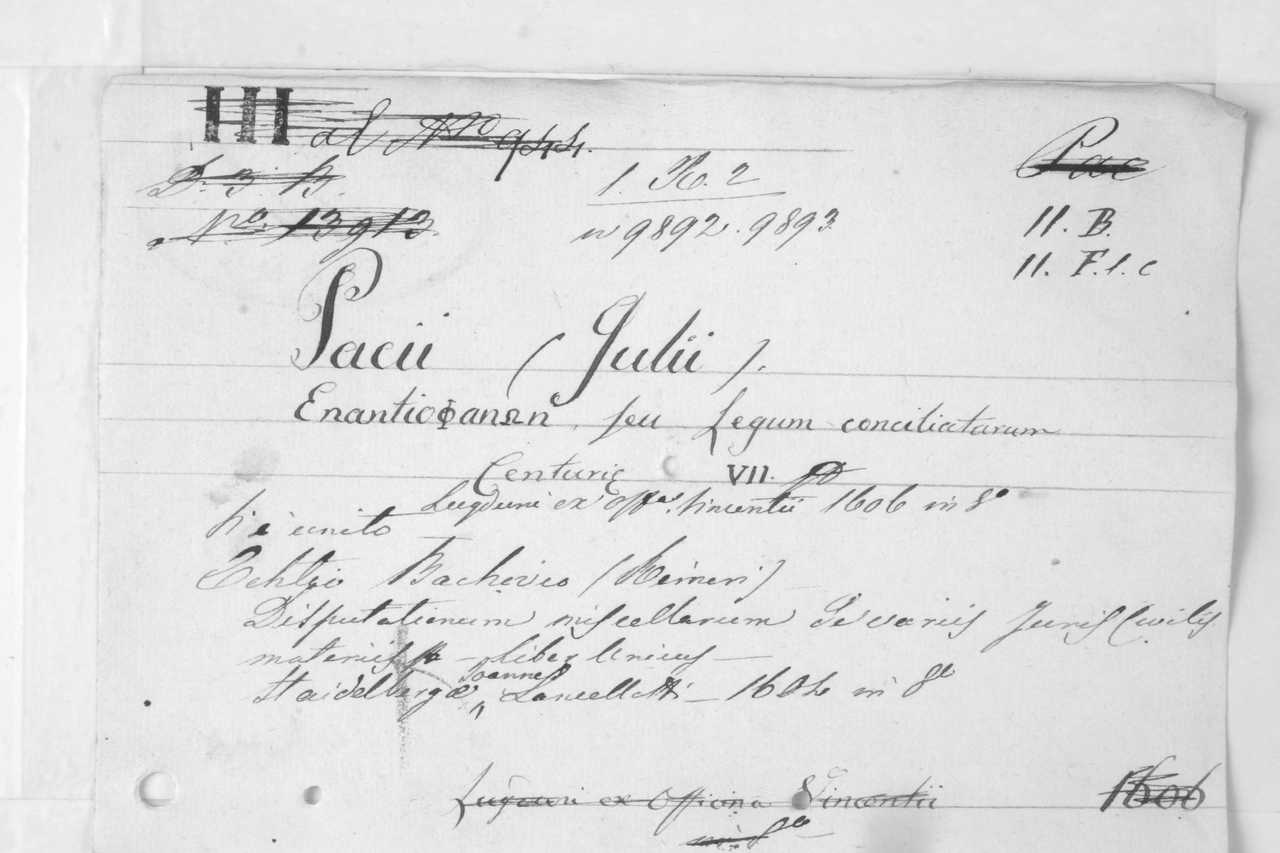 HH al Nro 944.
D. 3 B.
no. 13913
1. K. 2
n 9892. 9893
Pac
11. B.
11. F. 1. c
Pacii ( Julii ).
EnantioΦanΩn, seu Legum conciliatarum
Centurię VII.
Lugduni ex Offa. Vincentii 1606 in 8o
Vi è unito
Echtzio Bachovio (Reineri)
Disputationum miscellarum de variis Juris Civilis
materiis — Liber Unicus —
Haidelbergæ, Joannes Lancellotti — 1604 in 8o
Lugduni ex Officina Vincentii 1606
in 8o